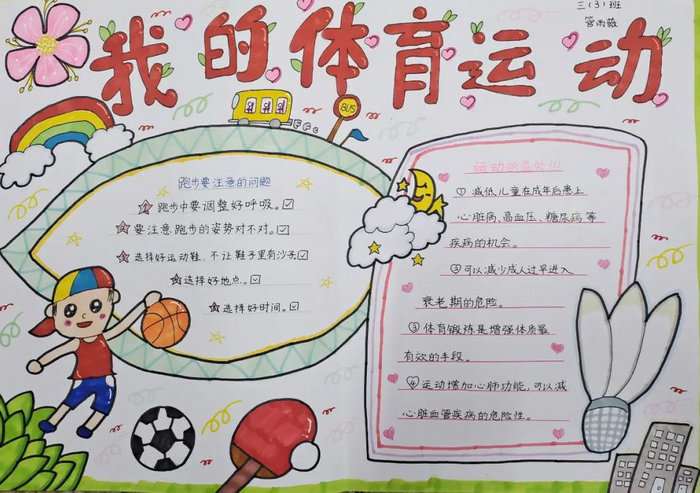 三(3)班
管雨薇
我的体育运动
BUS
跑步要注意的问题
跑步中要调整好呼吸。
要注意跑步的姿势对不对。
选择好运动鞋,不让鞋子里有沙子
选择好地点。
选择好时间。
运动的益处!!!
① 减低儿童在成年后患上
心脏病、高血压、糖尿病等
疾病的机会。
② 可以减少成人过早进入
衰老期的危险。
③ 体育锻炼是增强体质最
有效的手段。
④ 运动增加心肺功能,可以减
心脏血管疾病的危险性。